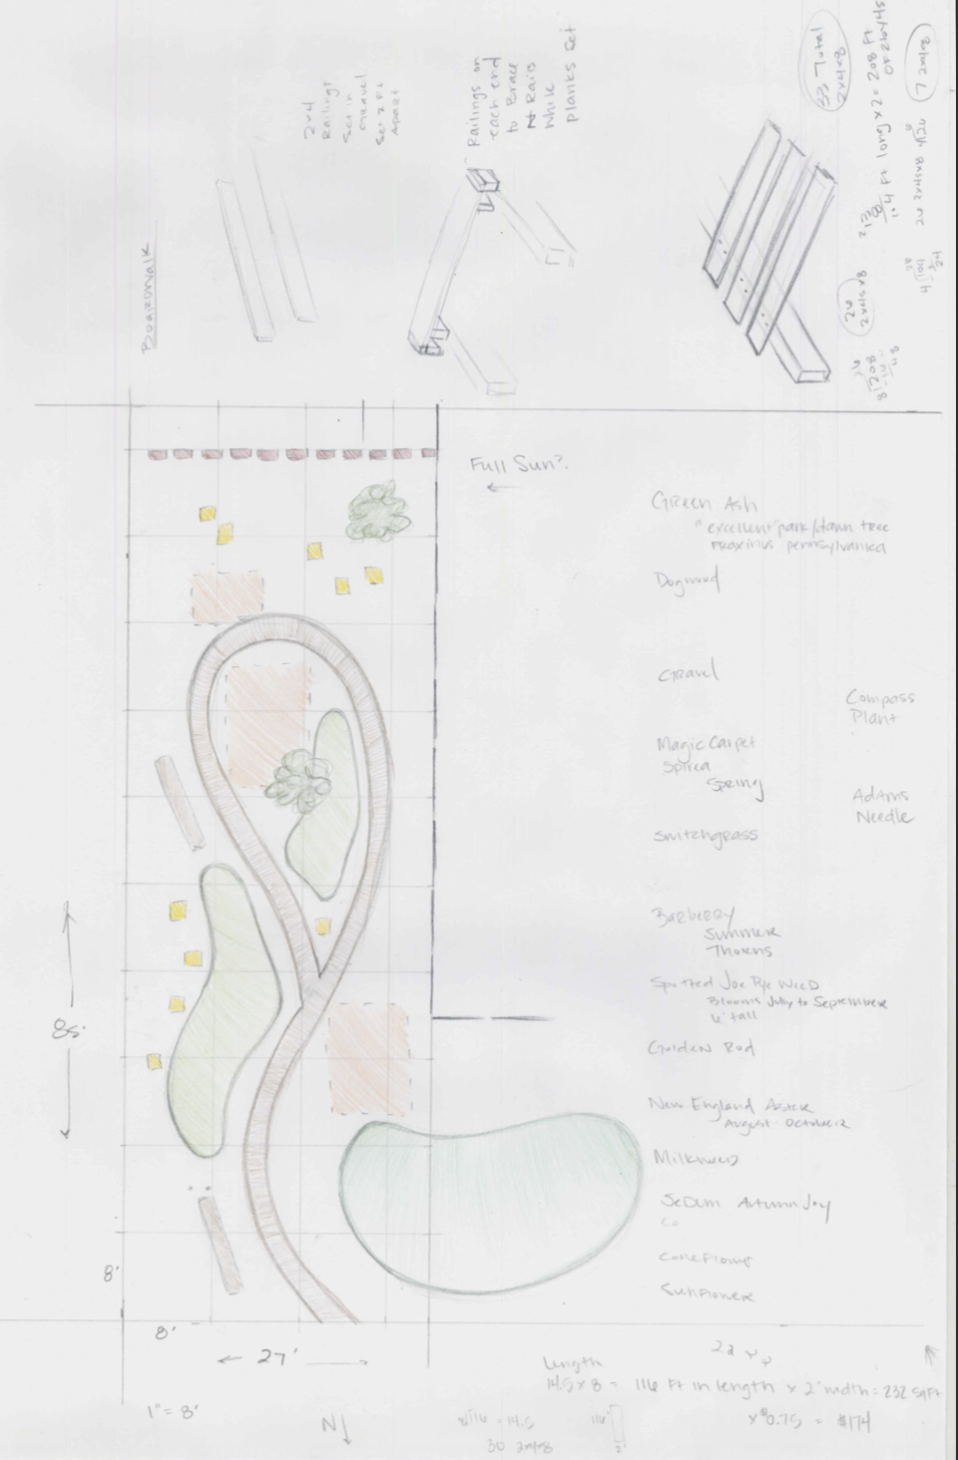 Boardwalk
2x4
Railings
Set in
Gravel
Set 2 Ft
Apart
Railings on
each end
to Brace
Rails
While
planks set
33 Total
2x4x8
7 2x4x8
ft long x 2 = 208 ft
26
2x4x8
8)208
Full Sun?
Green Ash
"excellent" park/lawn tree
Fraxinus pennsylvanica
Dogwood
Gravel
Compass
Plant
Magic Carpet
Spirea
Spring
Adams
Needle
Switchgrass
Barberry
Summer
Thorns
Spotted Joe Pye Weed
Blooms July to September
6' tall
Golden Rod
New England Aster
August - October
Milkweed
Sedum Autumn Joy
Coneflower
Sunflower
85'
8'
8'
27'
Length
14.5 x 8 = 116 Ft in length x 2' width = 232 sq Ft
x $0.75 = $174
1" = 8'
N
8)116 = 14.5
116'
2'
30 2x4x8